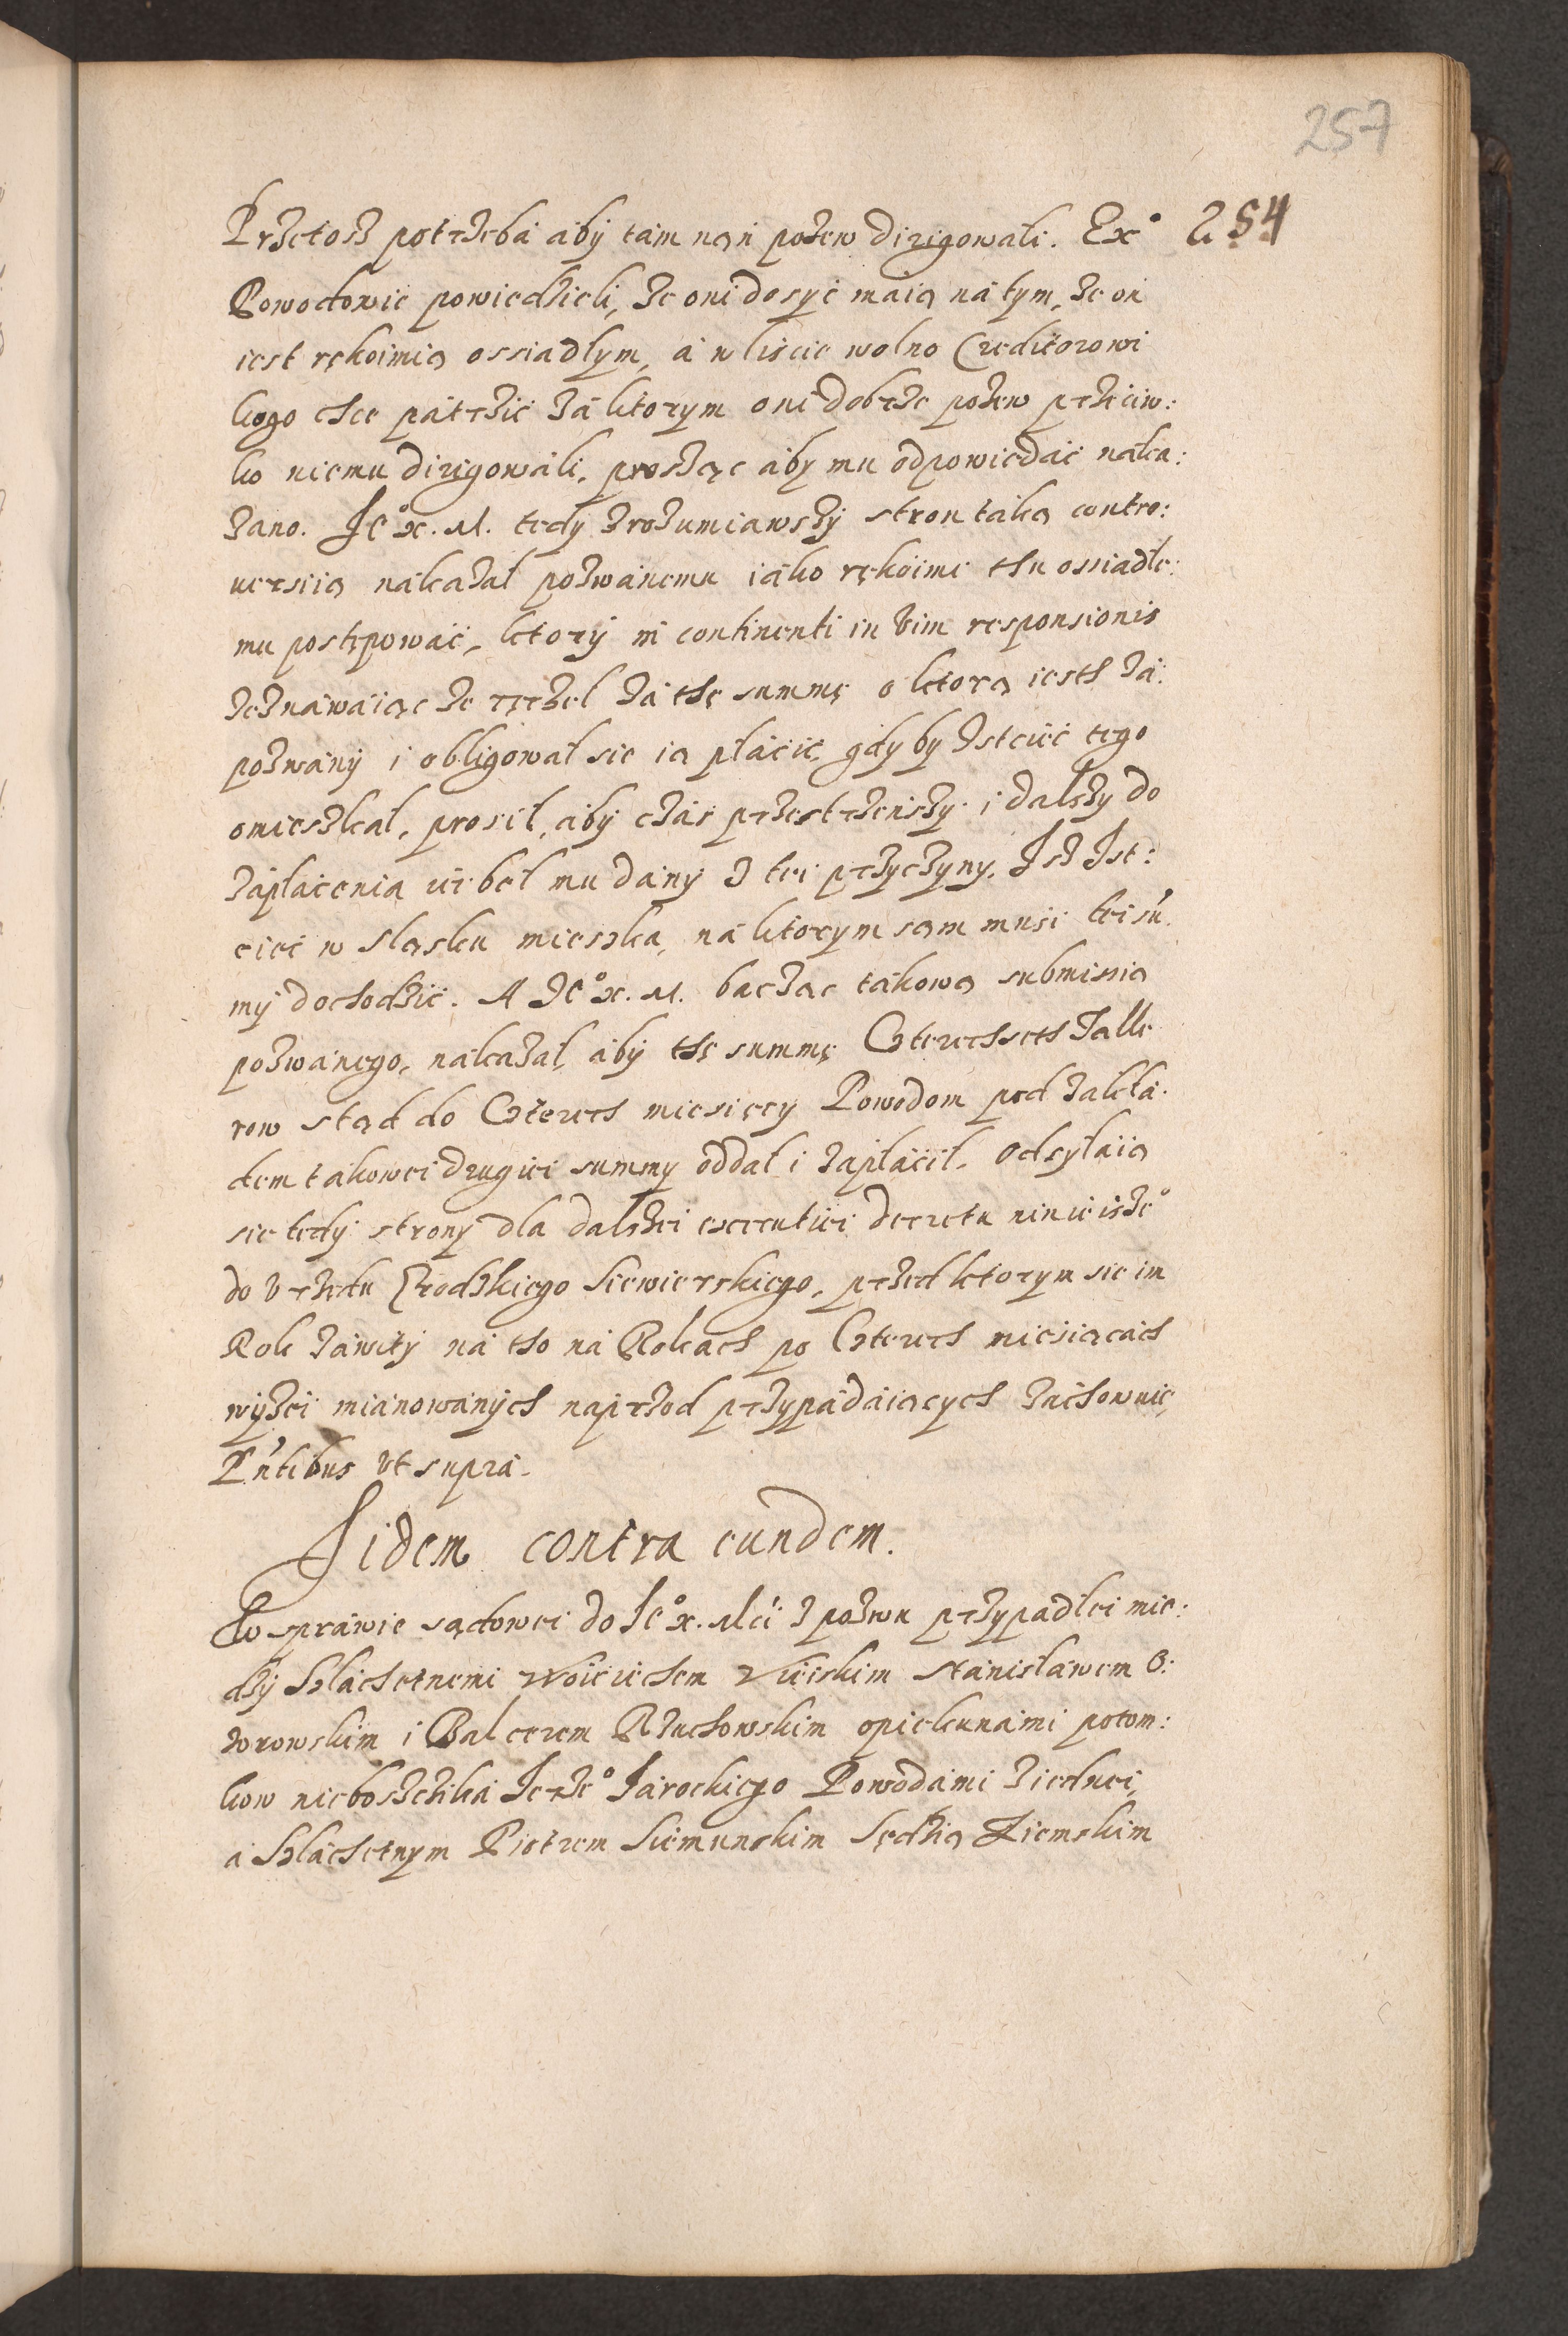 257
Przetosz potrzeba aby tam nań pozew dirigowali. Ex° 254
Powodowie powiedzieli, że oni dosyć maią na tym, że on
iest rękoimią ossiadłym, a w liscie wolno Creditorowi
kogo chce patrzić za ktorym oni dobrze pozew przeciw:
ko niemu dirigowali, prosząc aby mu odpowiedać naka:
zano. Je° X. M. tedy zrozumiawszy stron taką contro:
uersiią nakazał pozwanemu iako rękoimi thu ossiadłe:
mu postępować, ktory in continenti in vim responsionis
zeznawaiąc że ręczel za thę summę o ktorą iesth za:
pozwany i obligował sie ią płacić, gdyby Istcieć tego
omieszkal, prosił, aby czas przestrzenszy i dalszy do
zapłacenia iei beł mu dany z tei przyczyny, Isz Ist:
ciec w Sląsku mieszka, na ktorym sam musi tei sum̄
my dochodzić. A Je° X. M. bacząc takową submissią
pozwanego, nakazał, aby thę summę Czterechseth Talle
row stąd do Czterech miesięcy Powodom pod zakła.
dem takowei drugiei summy oddał i zapłacił. Odsyłaią
sie tedy strony dla dalszei executiei decretu ninieisze°
do Vrzędu Grodzkiego Siewierskiego, przed ktorym sie im
Rok zawity na tho na Rokach po Czterech miesiącach
wyzei mianowanych naprzod przypadaiących zachownie,
Pn̄tibus vt supra.
Iidem contra eundem.
W sprawie sądowei do Je° X. Mci z pozwu przypadłei mie:
dzy Szlachetnemi Woiciechem Stanisławem O:
zorowskim i Balcerem Rzuchowskim opiekunami potom:
kow nieboszczika Jerze° Jarockiego Powodami z iednei,
a Szlachetnym Piotrem Siemunskim Sędzią Ziemskim